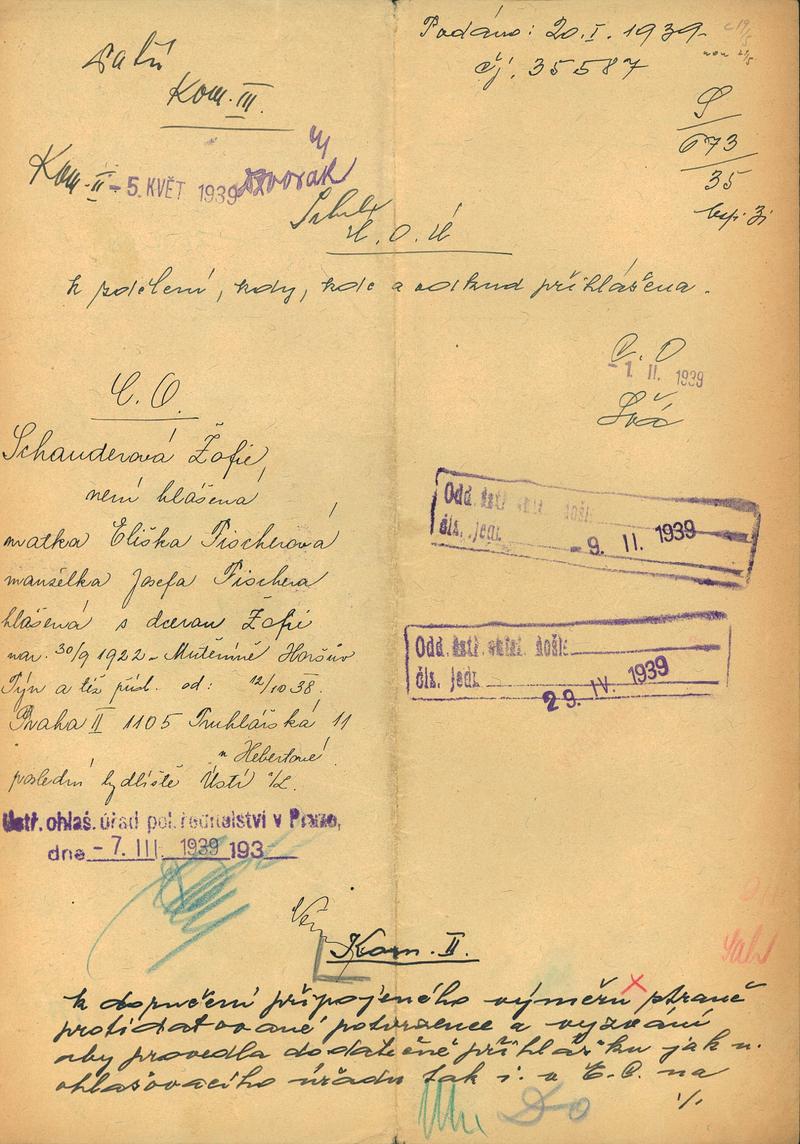 Podáno: 20.I.1939
čj. 35587
Kom. III.
S
673
35
Kom. II
- 5. KVĚT 1939
Dvořák
Ú.O.Ú
k sdělení, kdy, kde a odkud přihlášena.
- 1. II. 1939
Schauderová Žofie,
není hlášena
matka Eliška Fischerová
manželka Josefa Fischera
hlášená s dcerou Žofií
nar. 30/9 1922 - Mutěnině Horšův
Týn a též přísl. od: 12/10 38.
Praha II 1105 Truhlářská 11
u Hebertové
poslední bydliště Ústí n/L.
Odd. ústř. došlo
čís. jedn. - 9. II. 1939
Odd. ústř. došlo
čís. jedn. 29. IV. 1939
Ústř. ohlaš. úřad pol. ředitelství v Praze,
dne - 7. III. 1939 193
Kom. II.
k doručení připojeného výměru straně
proti datované potvrzence a vyzvání
aby provedla dodatečně přihlášku jak u
ohlašovacího úřadu tak i u E.O. na
./.